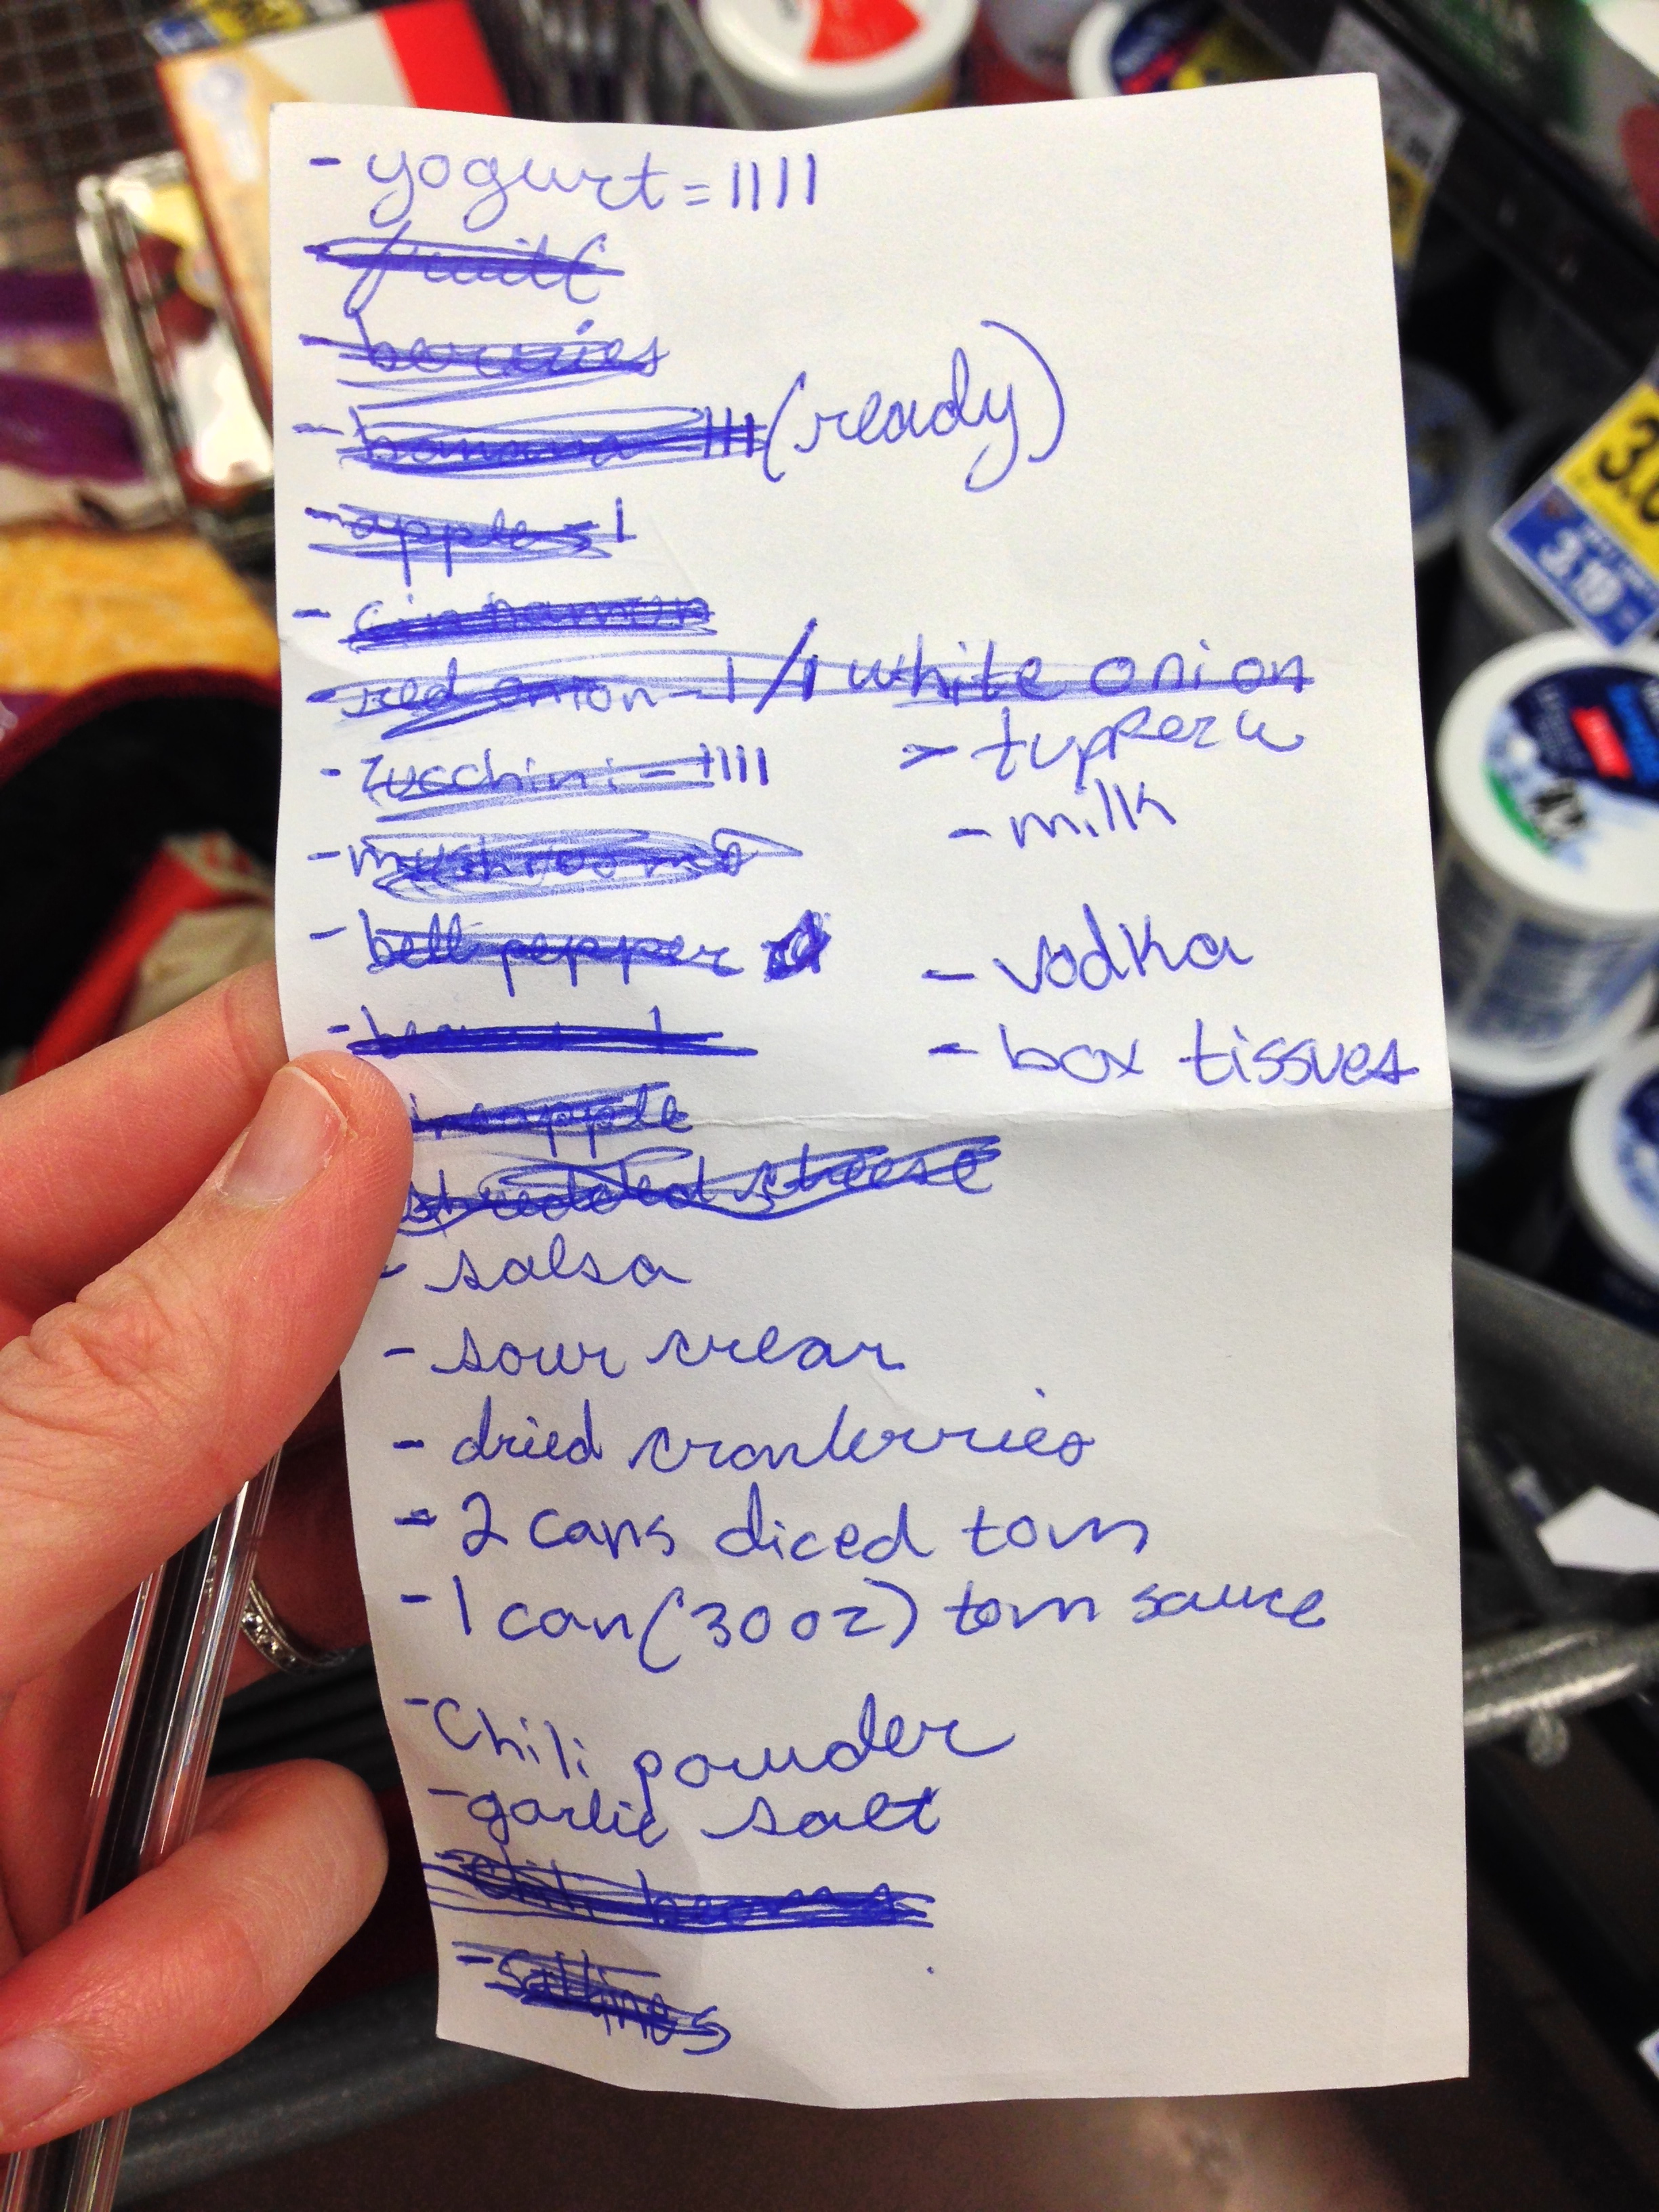 - yogurt = IIII
- fruit (
- berries
- banana III (ready)
- apple - 1
- cinnamon
- red onion - 1 / 1 white onion
- zucchini - IIII
- mushrooms
- bell pepper
pineapple
shredded cheese
- salsa
- sour cream
- dried cranberries
- 2 cans diced tom
- 1 can (30 oz) tom sauce
- Chili powder
- garlic salt
- chili beans
- saltines
> tupperw
- milk
- vodka
- box tissues
3.19